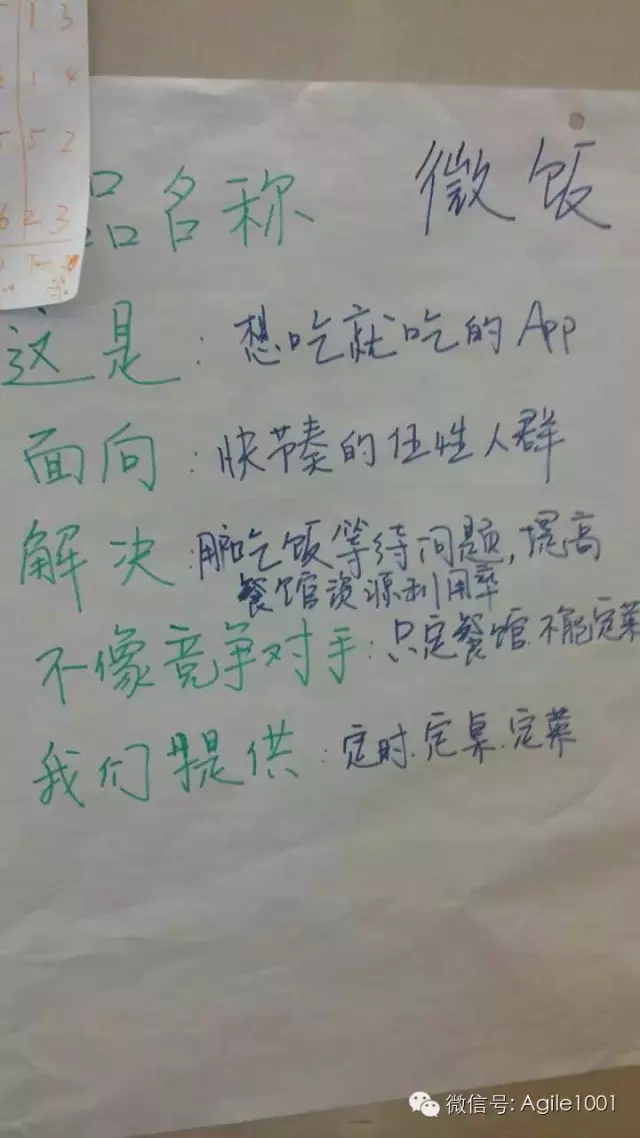 1 3
1 4
5 5 2
6 2 3
品名称 微饭
这是:想吃就吃的App
面向:快节奏的任性人群
解决:用户吃饭等待问题,提高
餐馆资源利用率
不像竞争对手:只定餐馆.不能定菜
我们提供:定时.定桌.定菜
微信号: Agile1001